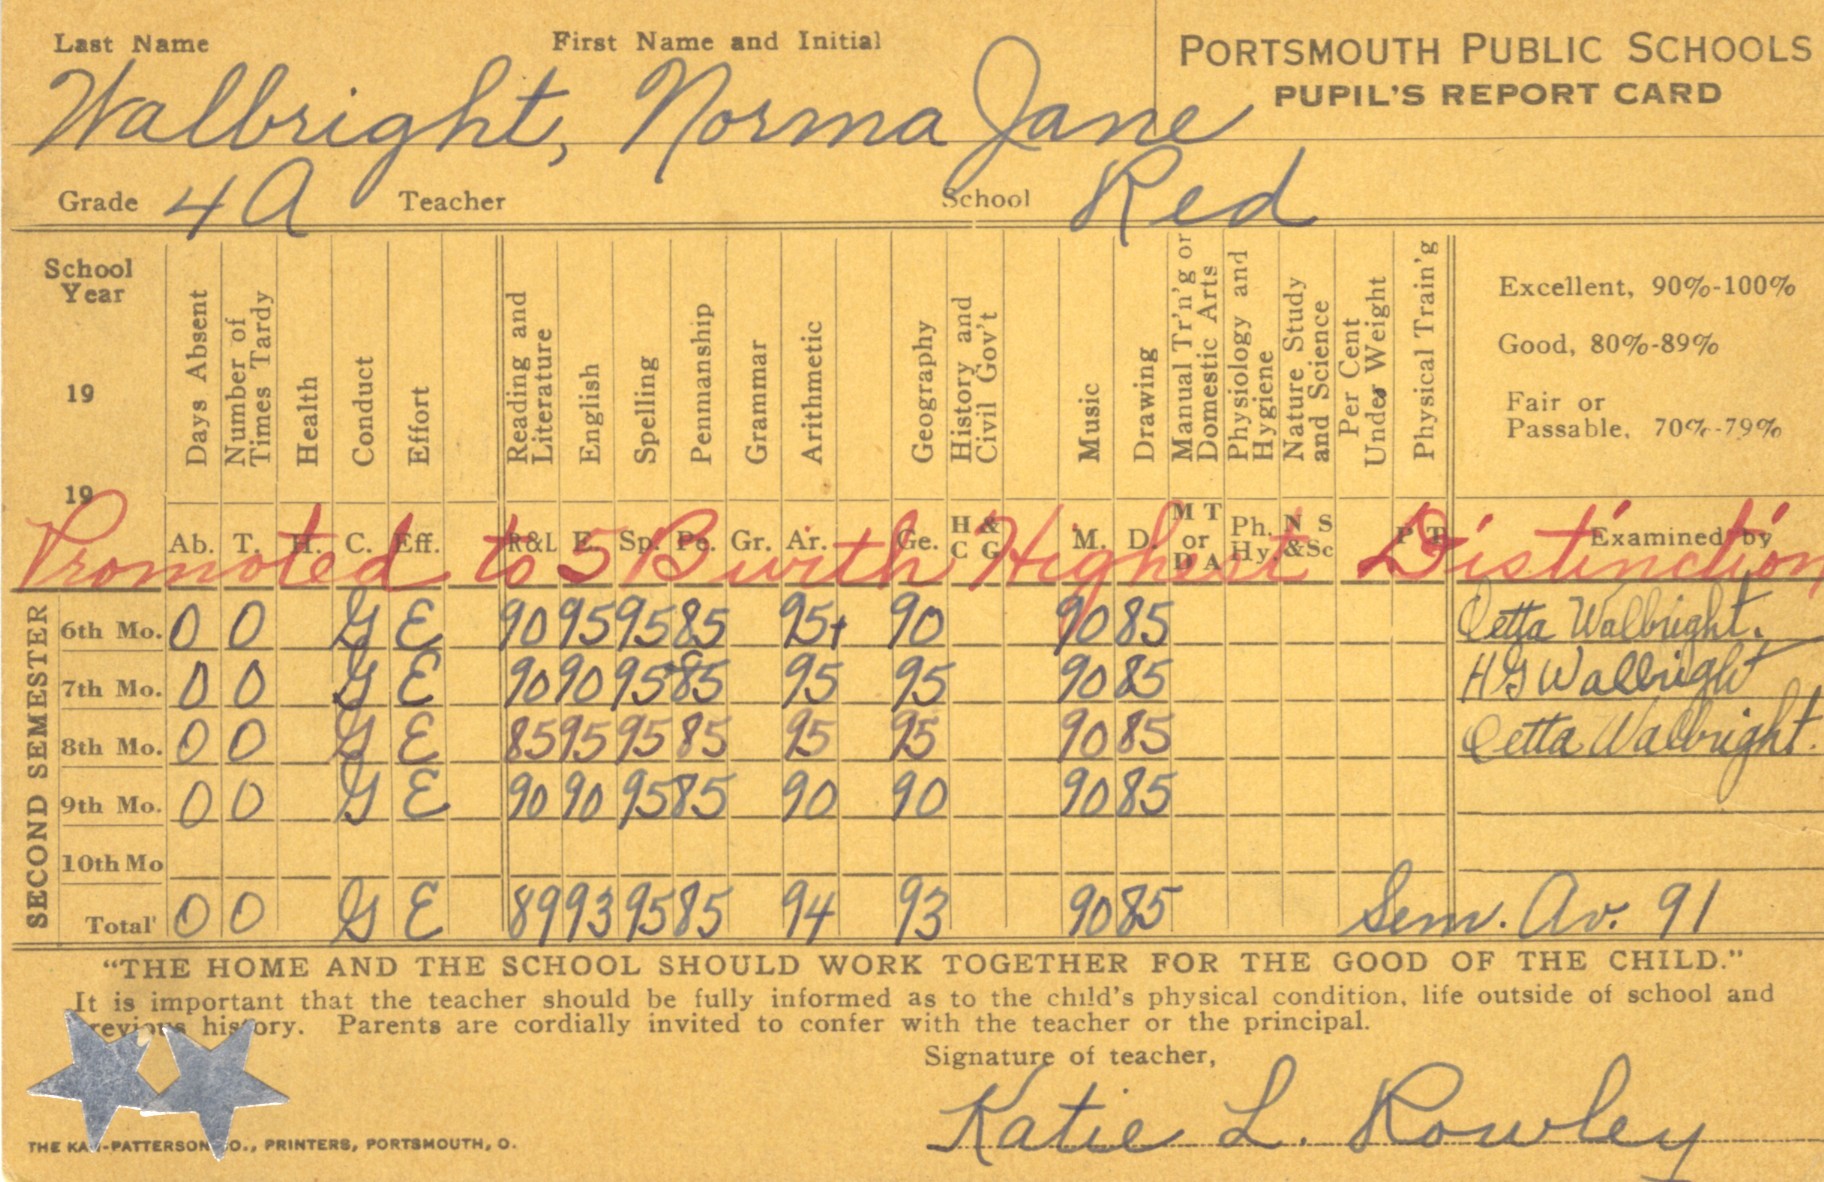 Last Name First Name and Initial PORTSMOUTH PUBLIC SCHOOLS
Walbright, Norma Jane PUPIL'S REPORT CARD
Grade 4A Teacher School Red
School Year 19 19
Days Absent
Number of Times Tardy
Health
Conduct
Effort
Reading and Literature
English
Spelling
Penmanship
Grammar
Arithmetic
Geography
History and Civil Gov't
Music
Drawing
Manual Tr'n'g or Domestic Arts
Physiology and Hygiene
Nature Study and Science
Per Cent Under Weight
Physical Train'g
Excellent, 90%-100%
Good, 80%-89%
Fair or
Passable, 70%-79%
Ab. T. H. C. Eff. R&L E. Sp. Pe. Gr. Ar. Ge. H & C G M. D. M T or D A Ph. Hy. N S &Sc P T Examined by
Promoted to 5B with Highest Distinction
SECOND SEMESTER
6th Mo. 0 0 G E 90 95 95 85 95+ 90 90 85 Oetta Walbright.
7th Mo. 0 0 G E 90 90 95 85 95 95 90 85 H G Walbright
8th Mo. 0 0 G E 85 95 95 85 95 95 90 85 Oetta Walbright.
9th Mo. 0 0 G E 90 90 95 85 90 90 90 85
10th Mo
Total 0 0 G E 89 93 95 85 94 93 90 85 Sem. Av. 91
"THE HOME AND THE SCHOOL SHOULD WORK TOGETHER FOR THE GOOD OF THE CHILD."
It is important that the teacher should be fully informed as to the child's physical condition, life outside of school and
previous history. Parents are cordially invited to confer with the teacher or the principal.
Signature of teacher,
Katie L. Rowley
THE PATTERSON CO., PRINTERS, PORTSMOUTH, O.